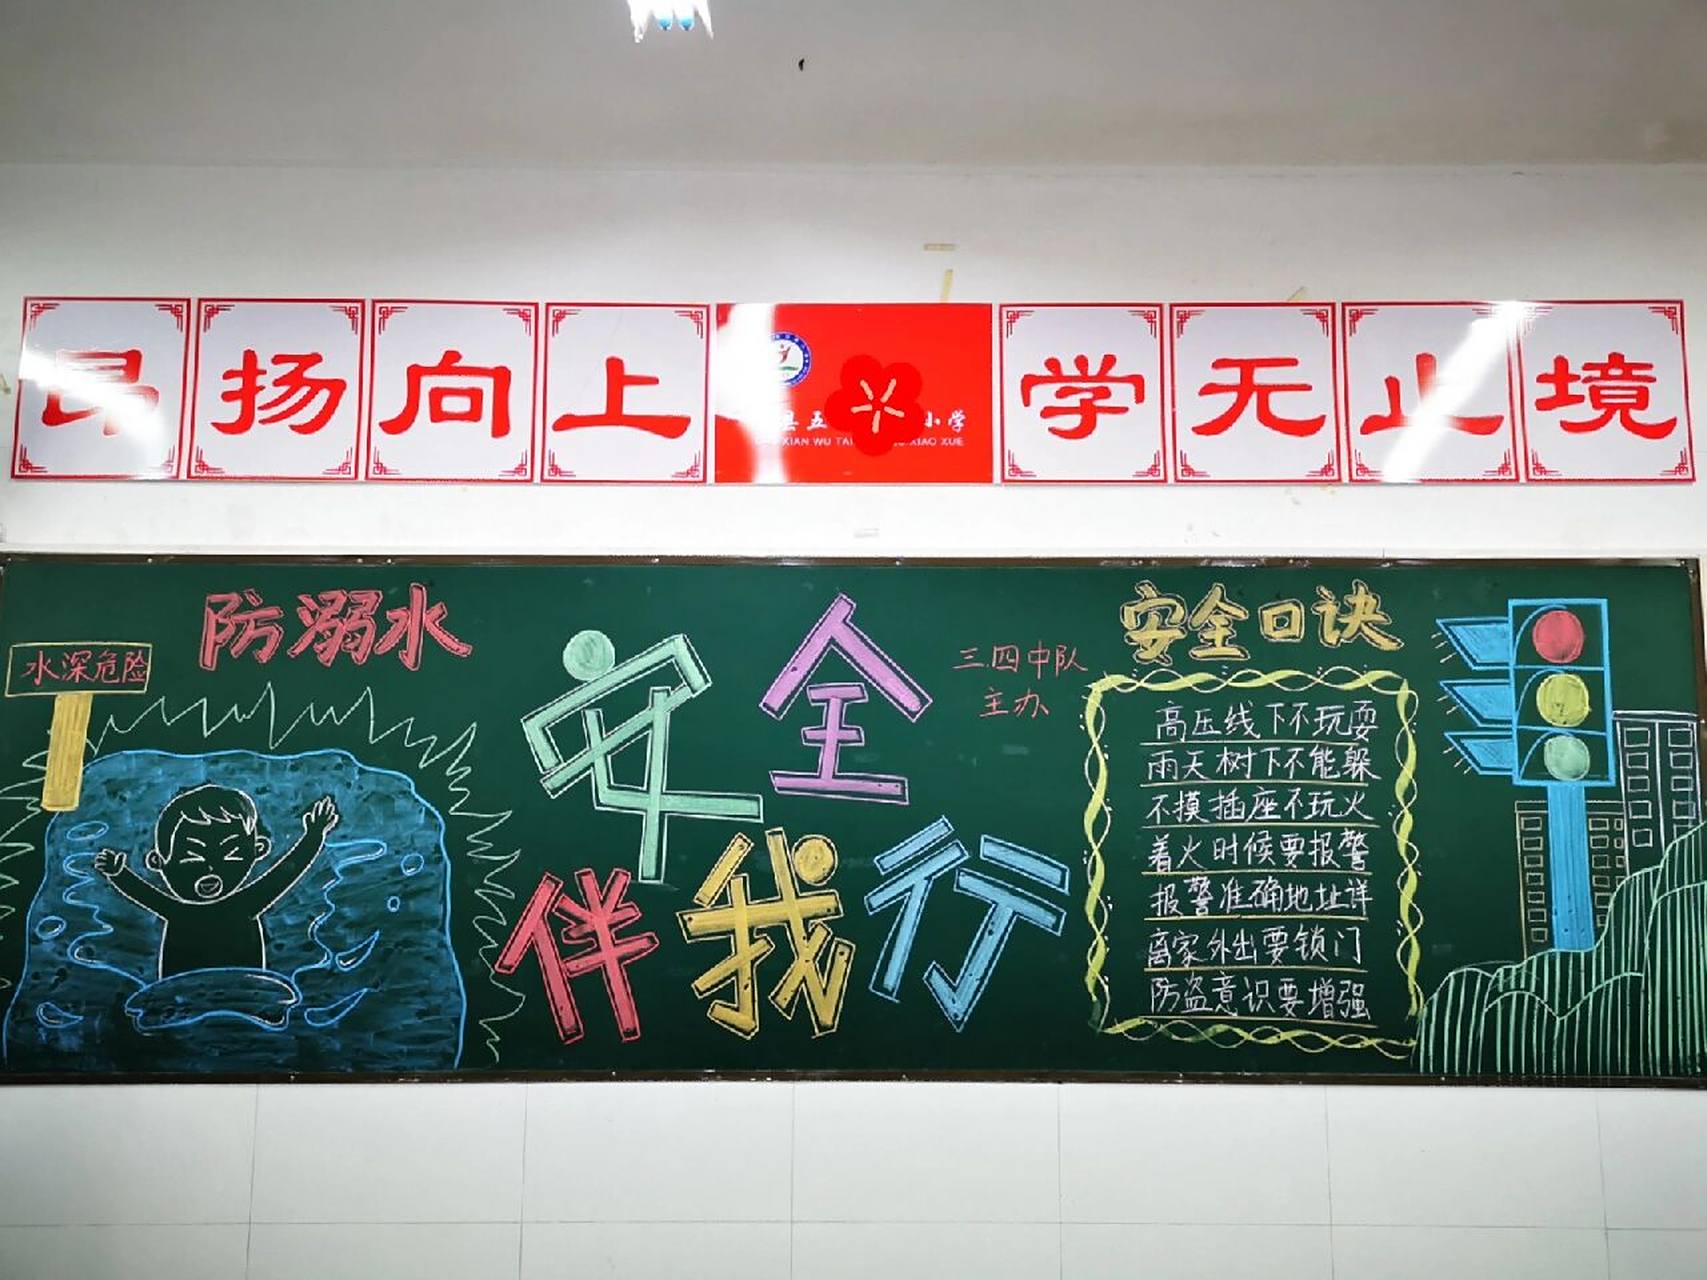 昂扬向上
县五 小学
XIAN WU TAI XIAO XUE
学无止境
防溺水
水深危险
安全
伴我行
三四中队
主办
安全口诀
高压线下不玩耍
雨天树下不能躲
不摸插座不玩火
着火时候要报警
报警准确地址详
离家外出要锁门
防盗意识要增强